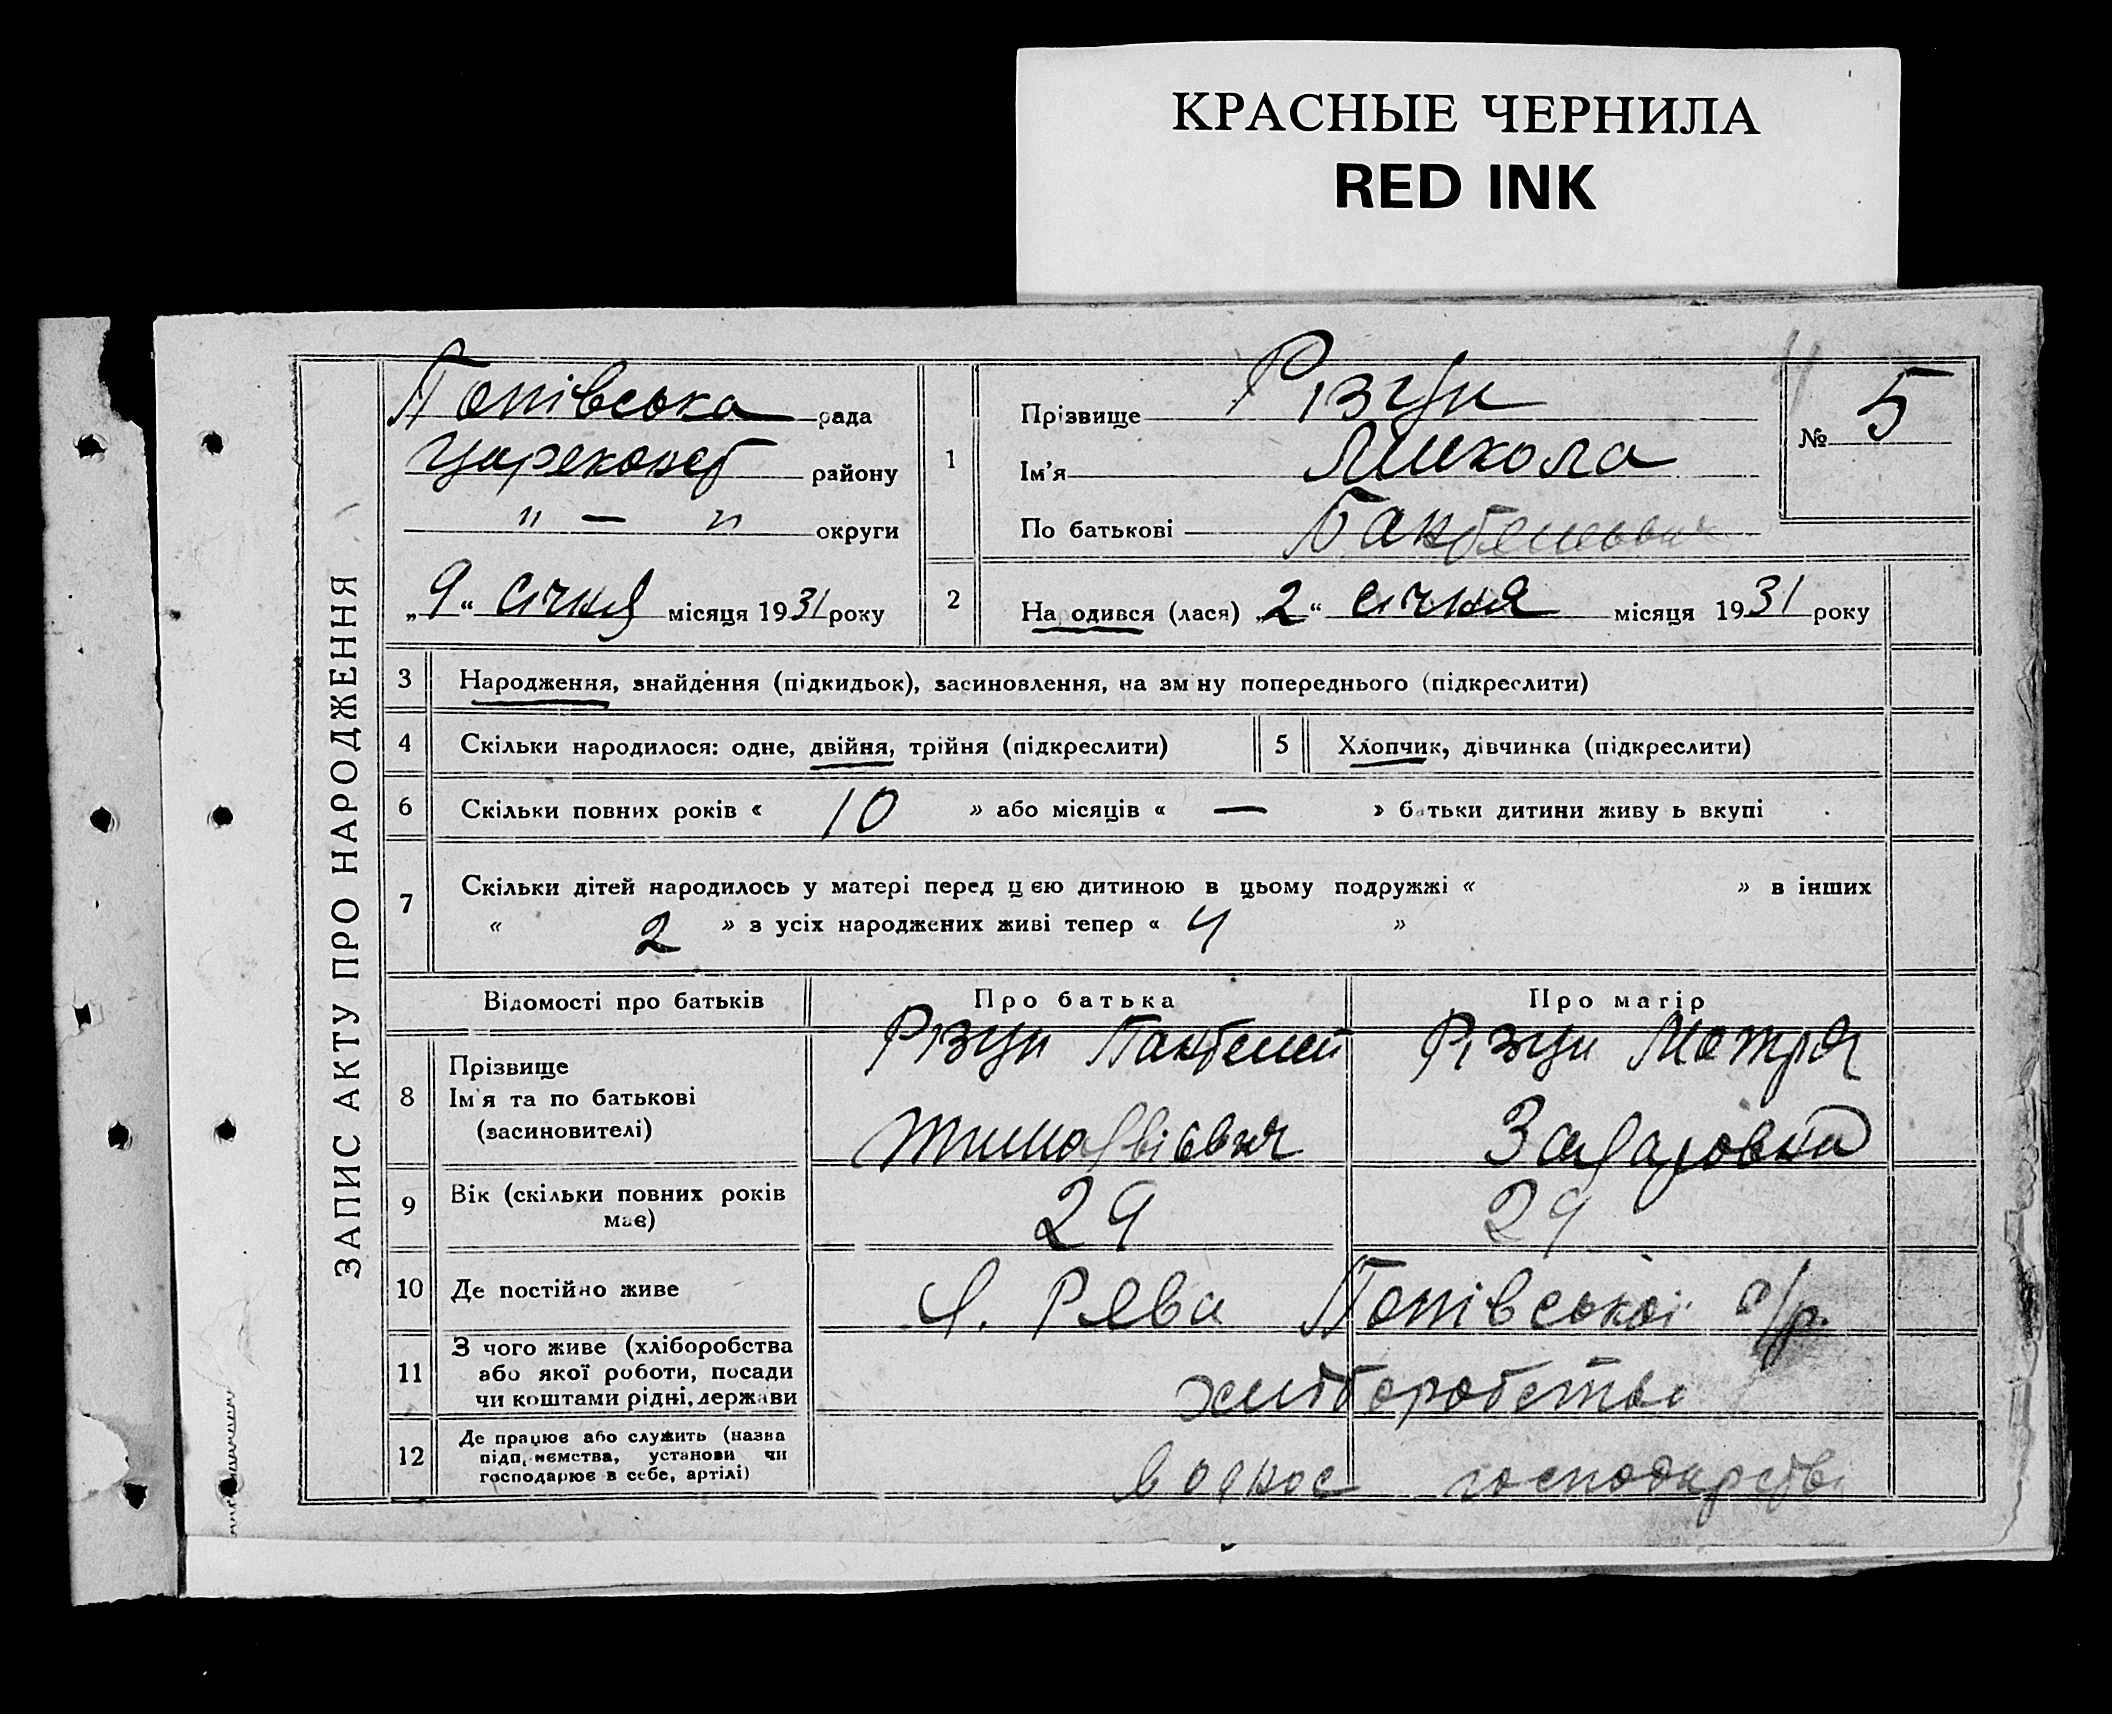 КРАСНЫЕ ЧЕРНИЛА
RED INK
ЗАПИС АКТУ ПРО НАРОДЖЕННЯ
Попівська рада
району
" — " округи
„9“ січня місяця 1931 року
1
Прізвище Різун
Ім'я Микола
По батькові
№ 5
2
Народився (лася) „2“ січня місяця 1931 року
3 Народження, знайдення (підкидьок), засиновлення, на зм ну попереднього (підкреслити)
4 Скільки народилося: одне, двійня, трійня (підкреслити)
5 Хлопчик, дівчинка (підкреслити)
6 Скільки повних років « 10 » або місяців « — » б тьки дитини живу ь вкупі
7 Скільки дітей народилось у матері перед цією дитиною в цьому подружжі « » в інших
« 2 » з усіх народжених живі тепер « 4 »
Відомості про батьків Про батька Про матір
8 Прізвище
Ім'я та по батькові
(засиновителі)
Різун Пантелей
Різун Мотря
9 Вік (скільки повних років
має)
29 29
10 Де постійно живе
Попівської с/р.
11 З чого живе (хліборобства
або якої роботи, посади
чи коштами рідні, держави
хліборобства
12 Де працює або служить (назва
підприємства, установи чи
господарює в себе, артілі)
господарстві